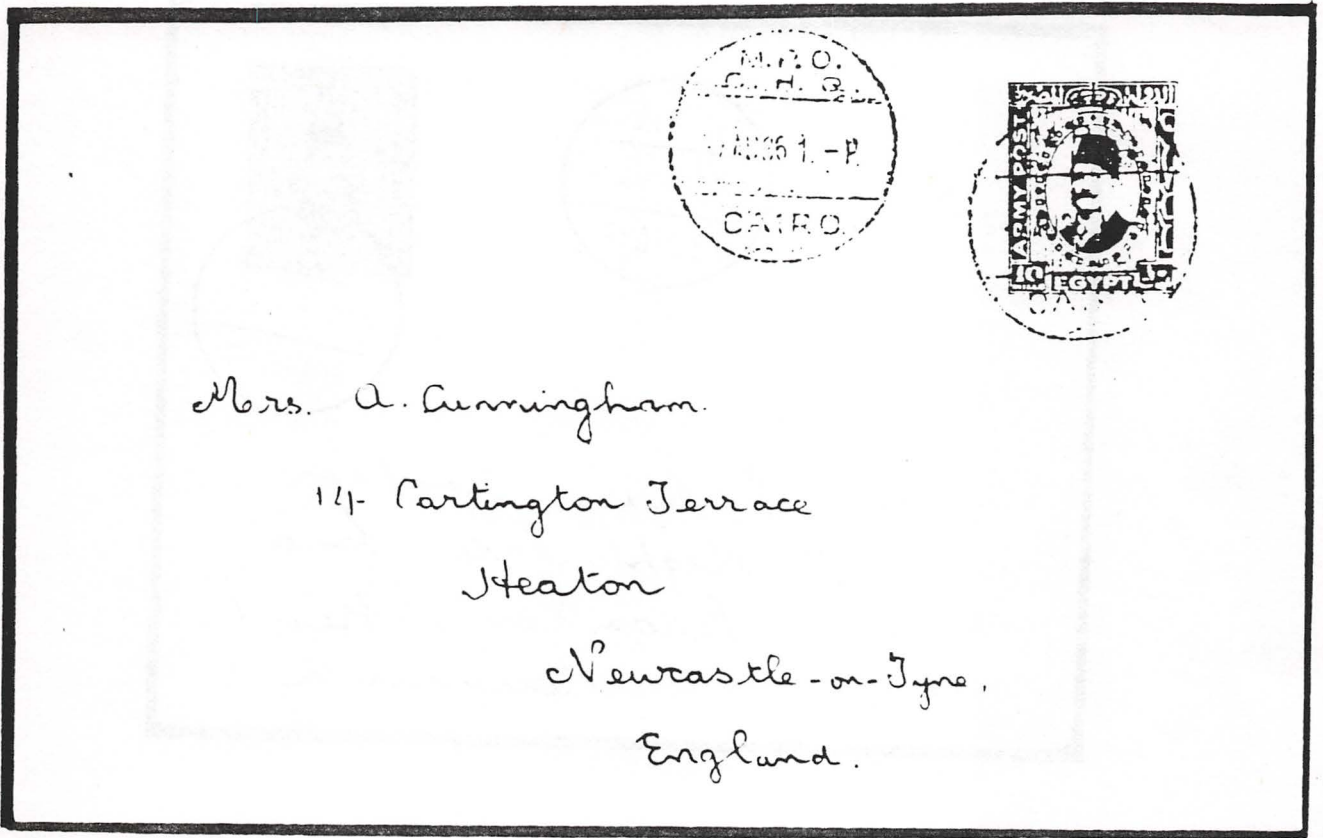 M.P.O.
G. H. Q.
AU36 1.-P.
CAIRO
ARMY POST
10 EGYPT ١٠
CA
Mrs. A. Cunningham.
14 Cartington Terrace
Heaton
Newcastle-on-Tyne,
England.